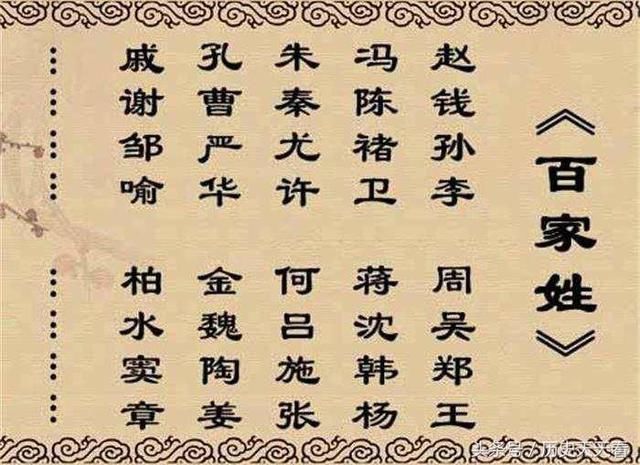 《百家姓》
赵钱孙李
周吴郑王
冯陈褚卫
蒋沈韩杨
朱秦尤许
何吕施张
孔曹严华
金魏陶姜
戚谢邹喻
柏水窦章
……
……
头条号/历史天天看